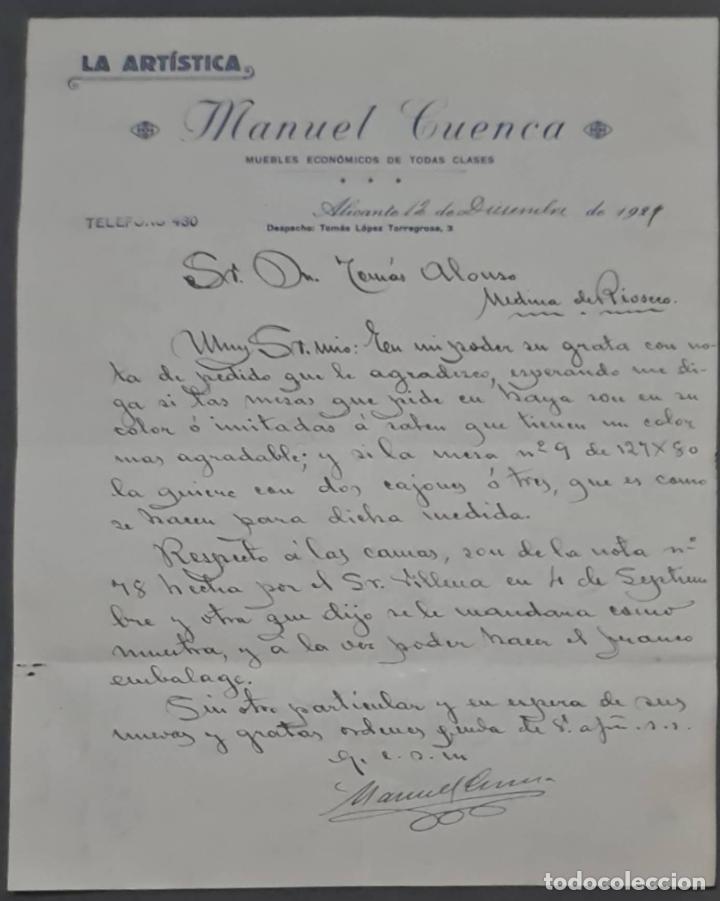 LA ARTÍSTICA
Manuel Cuenca
MUEBLES ECONÓMICOS DE TODAS CLASES
Alicante 12 de Diciembre de 1929
TELEFONO 430
Despacho: Tomás López Torregrosa, 3
Sr. Dn. Tomás Alonso
Medina de Rioseco.
Muy Sr. mio: En mi poder su grata con no-
ta de pedido que le agradezco, esperando me di-
ga si las mesas que pide en haya son en su
color ó imitadas á que tienen un color
mas agradable; y si la mesa nº 9 de 127 X 80
la quiere con dos cajones ó tres, que es como
se hacen para dicha medida.
Respecto á las camas, son de la nota nº
78 hecha por el Sr. Villena en 4 de Septiem
bre y otra que dijo se le mandara como
muestra, y á la vez poder hacer el franco
embalage.
Sin otro particular y en espera de sus
nuevas y gratas ordenes queda de V. afmo. s.s.
q. e. s. m
Manuel Cuenca
todocoleccion